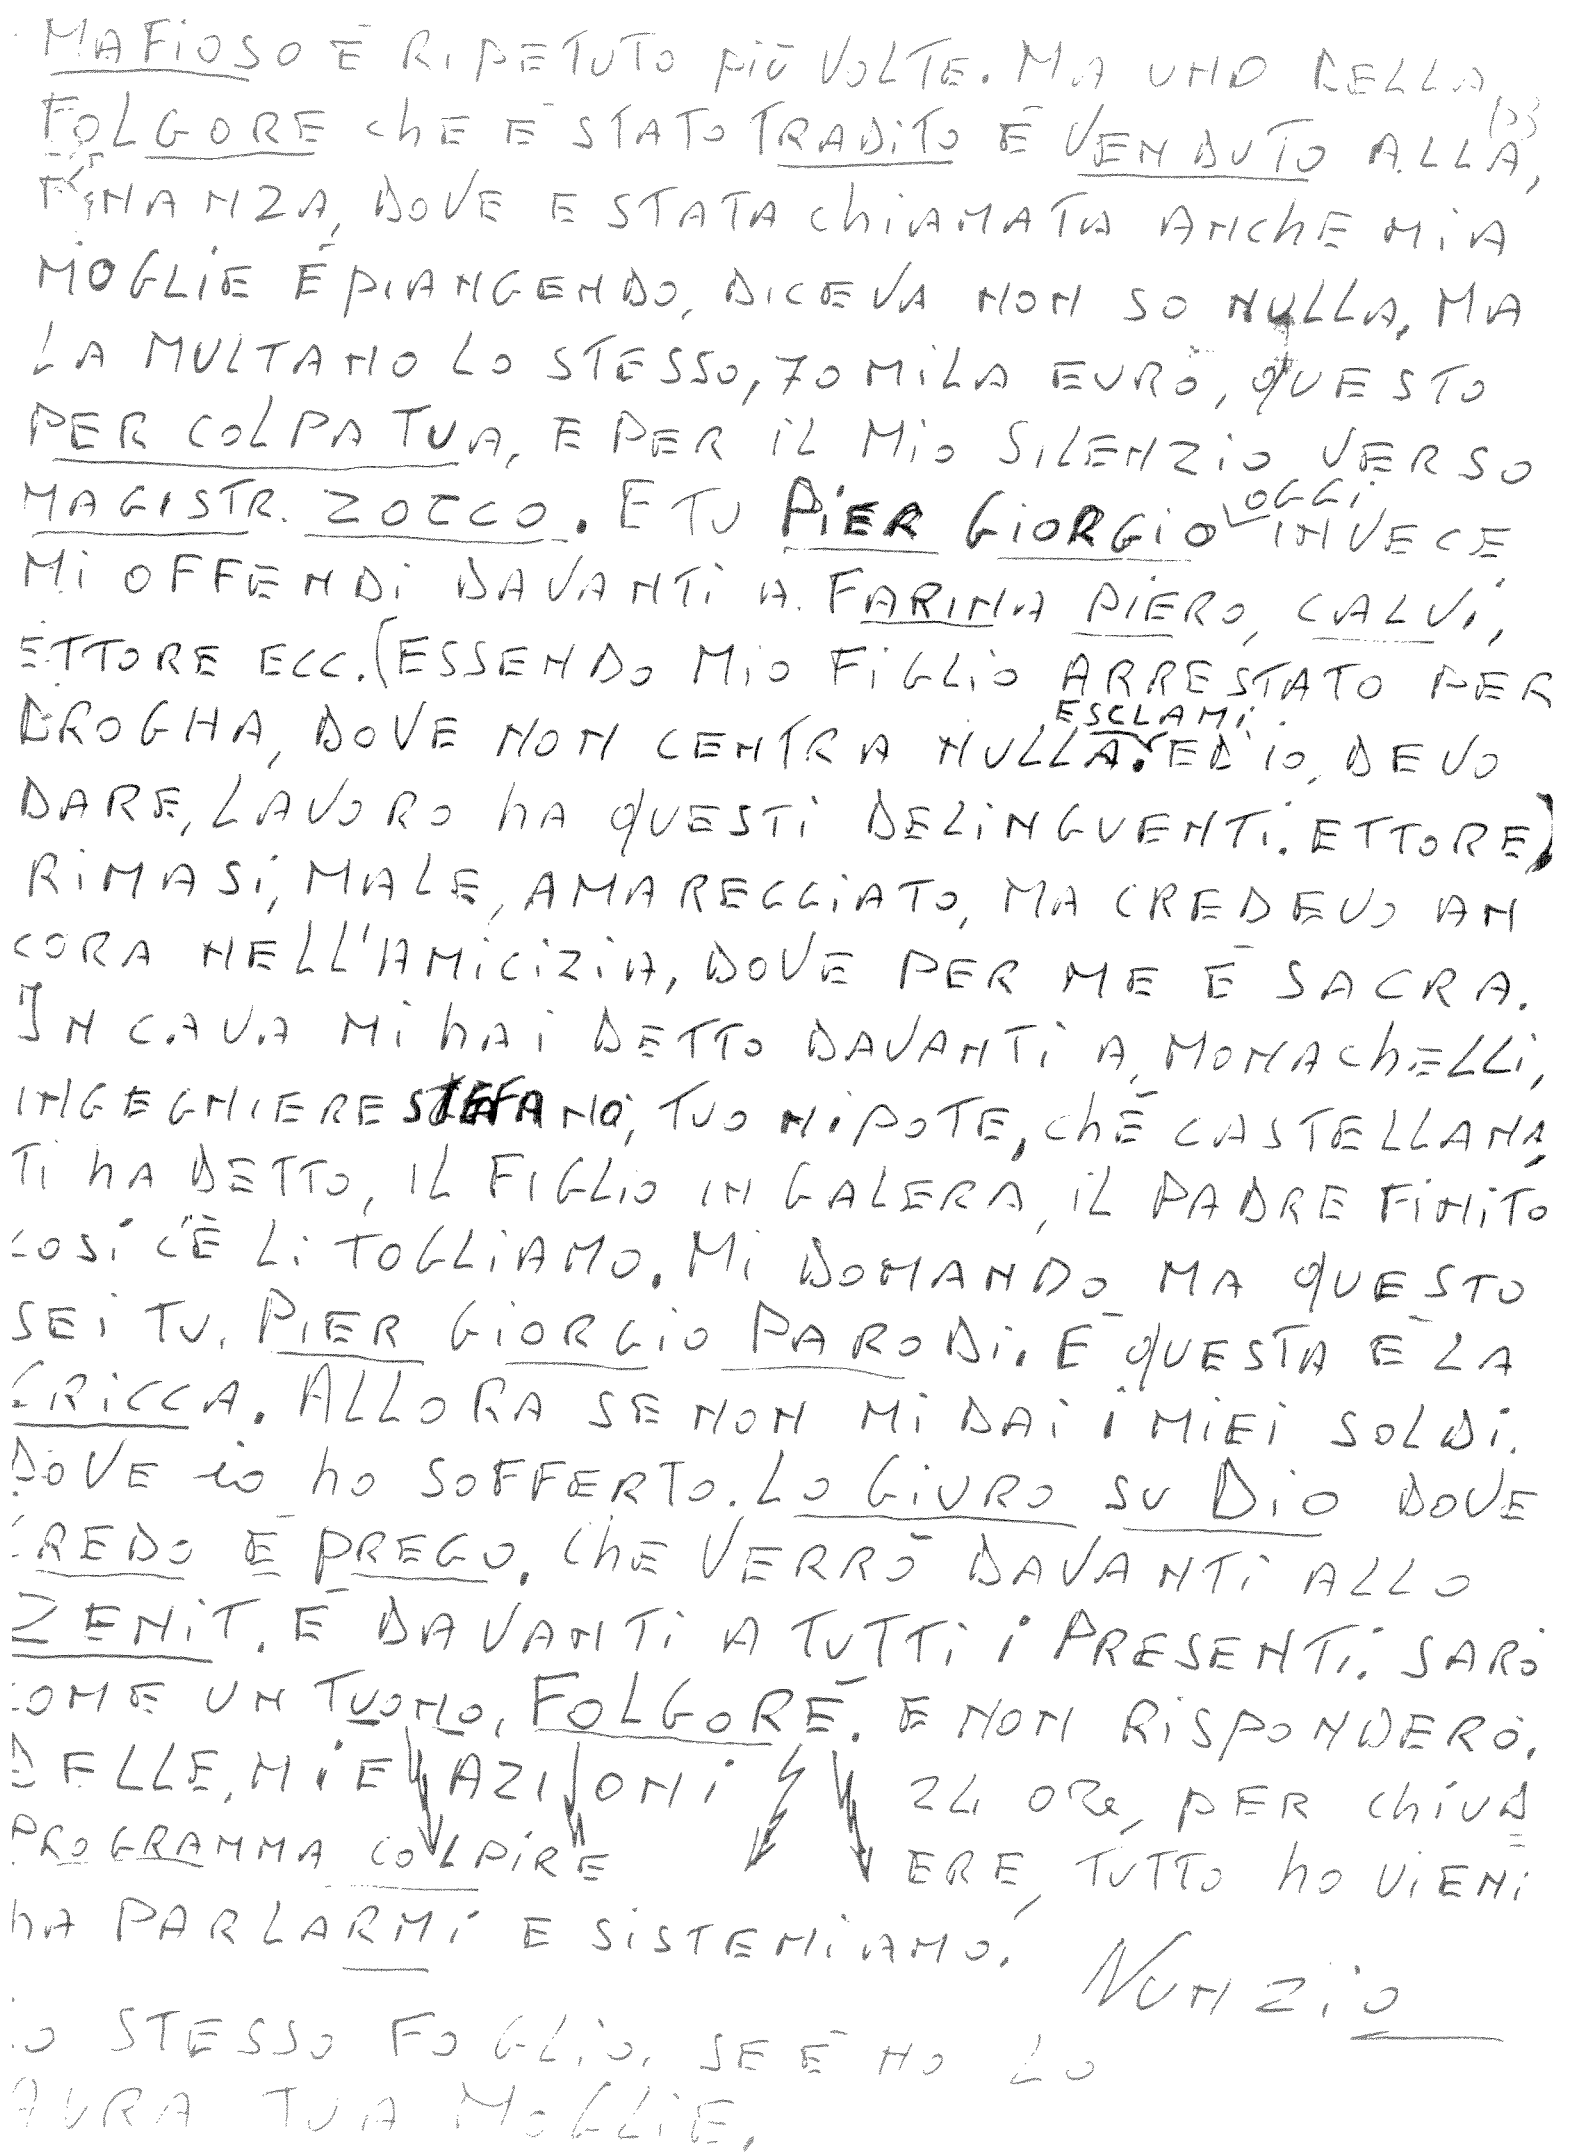 MAFIOSO E RIPETUTO PIÙ VOLTE. MA UNO DELLA
FOLGORE CHE È STATO TRADITO E VENDUTO ALLA,
FINANZA, DOVE E STATA CHIAMATA ANCHE MIA
MOGLIE È PIANGENDO, DICEVA NON SO NULLA, MA
LA MULTANO LO STESSO, 70 MILA EURO, QUESTO
PER COLPA TUA, E PER IL MIO SILENZIO VERSO
MAGISTR. ZOCCO. E TU PIER GIORGIO OGGI INVECE
MI OFFENDI DAVANTI A FARINA PIERO, CALVI,
ETTORE ECC. (ESSENDO MIO FIGLIO ARRESTATO PER
DROGHA, DOVE NON CENTRA NULLA. ESCLAMI ED IO, DEVO
DARE, LAVORO HA QUESTI DELINGUENTI. ETTORE)
RIMASI, MALE, AMAREGGIATO, MA CREDEVO AN
CORA NELL'AMICIZIA, DOVE PER ME È SACRA.
IN CAVA MI HAI DETTO DAVANTI A MONACHELLI,
INGEGNIERE STEFANO, TUO NIPOTE, CHÈ CASTELLANA
TI HA DETTO, IL FIGLIO IN GALERA, IL PADRE FINITO
COSÌ C'È LI TOGLIAMO. MI DOMANDO MA QUESTO
SEI TU. PIER GIORGIO PARODI. È QUESTA È LA
CRICCA. ALLORA SE NON MI DAI I MIEI SOLDI.
DOVE IO HO SOFFERTO. LO GIURO SU DIO DOVE
CREDO È PREGO. CHE VERRÒ DAVANTI ALLO
ZENIT. È DAVANTI A TUTTI I PRESENTI. SARÒ
COME UN TUONO, FOLGORE. E NON RISPONDERÒ,
DELLE, MIE AZIONI 24 ORE, PER CHIUD
PROGRAMMA COLPIRE ERE, TUTTO HO VIENI
HA PARLARMI E SISTEMIAMO. NUNZIO
LO STESSO FOGLIO. SE È NO LO
AVRA TUA MOGLIE.